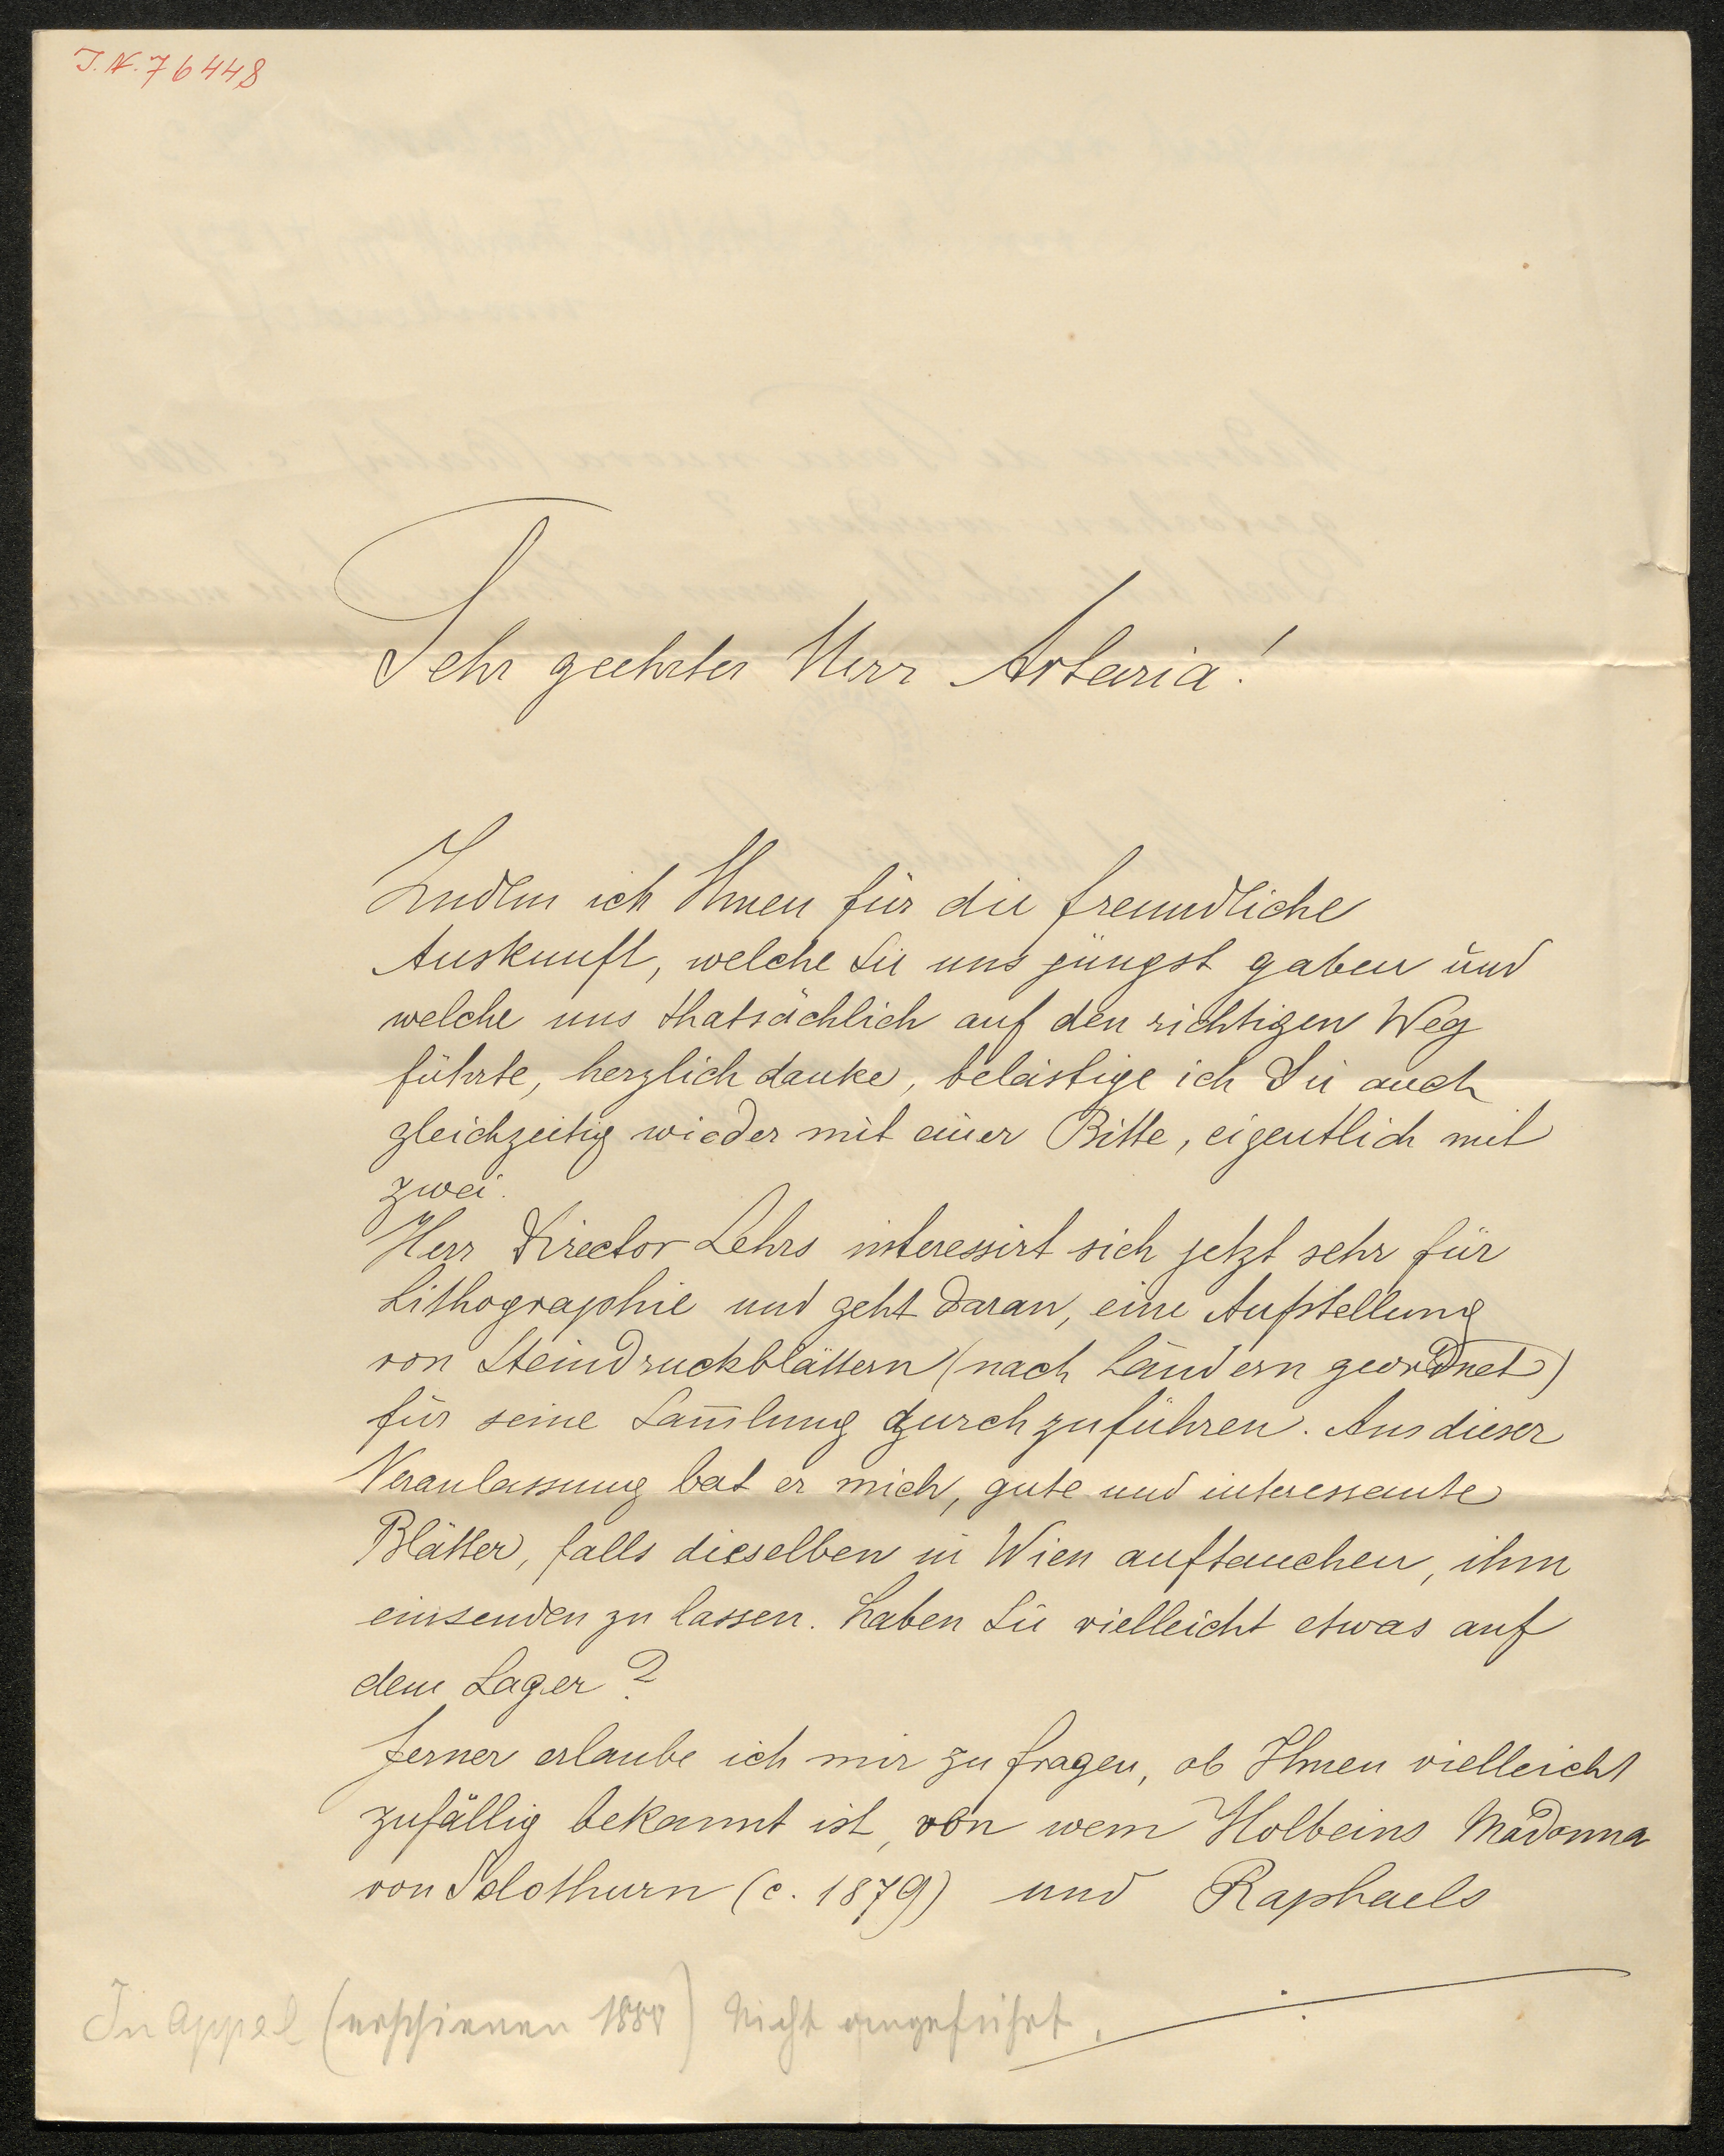 J.N. 76448
Sehr geehrter Herr Artaria!
Indem ich Ihnen für die freundliche
Auskunft, welche Sie uns jüngst gaben und
welche uns thatsächlich auf den richtigen Weg
führte, herzlich danke, belästige ich Sie auch
gleichzeitig wieder mit einer Bitte, eigentlich mit
zwei.
Herr Director Lehrs interessirt sich jetzt sehr für
Lithographie und geht daran, eine Aufstellung
von Steindruckblättern (nach Ländern geordnet)
für seine Sam̅lung durchzuführen. Aus dieser
Veranlassung bat er mich, gute und interessante
Blätter, falls dieselben in Wien auftauchen, ihm
einsenden zu lassen. Haben Sie vielleicht etwas auf
dem Lager?
Ferner erlaube ich mir zu fragen, ob Ihnen vielleicht
zufällig bekannt ist, von wem Holbeins Madonna
von Solothurn (c. 1879) und Raphaels
In Appel (erschienen 1880) nicht angeführt.